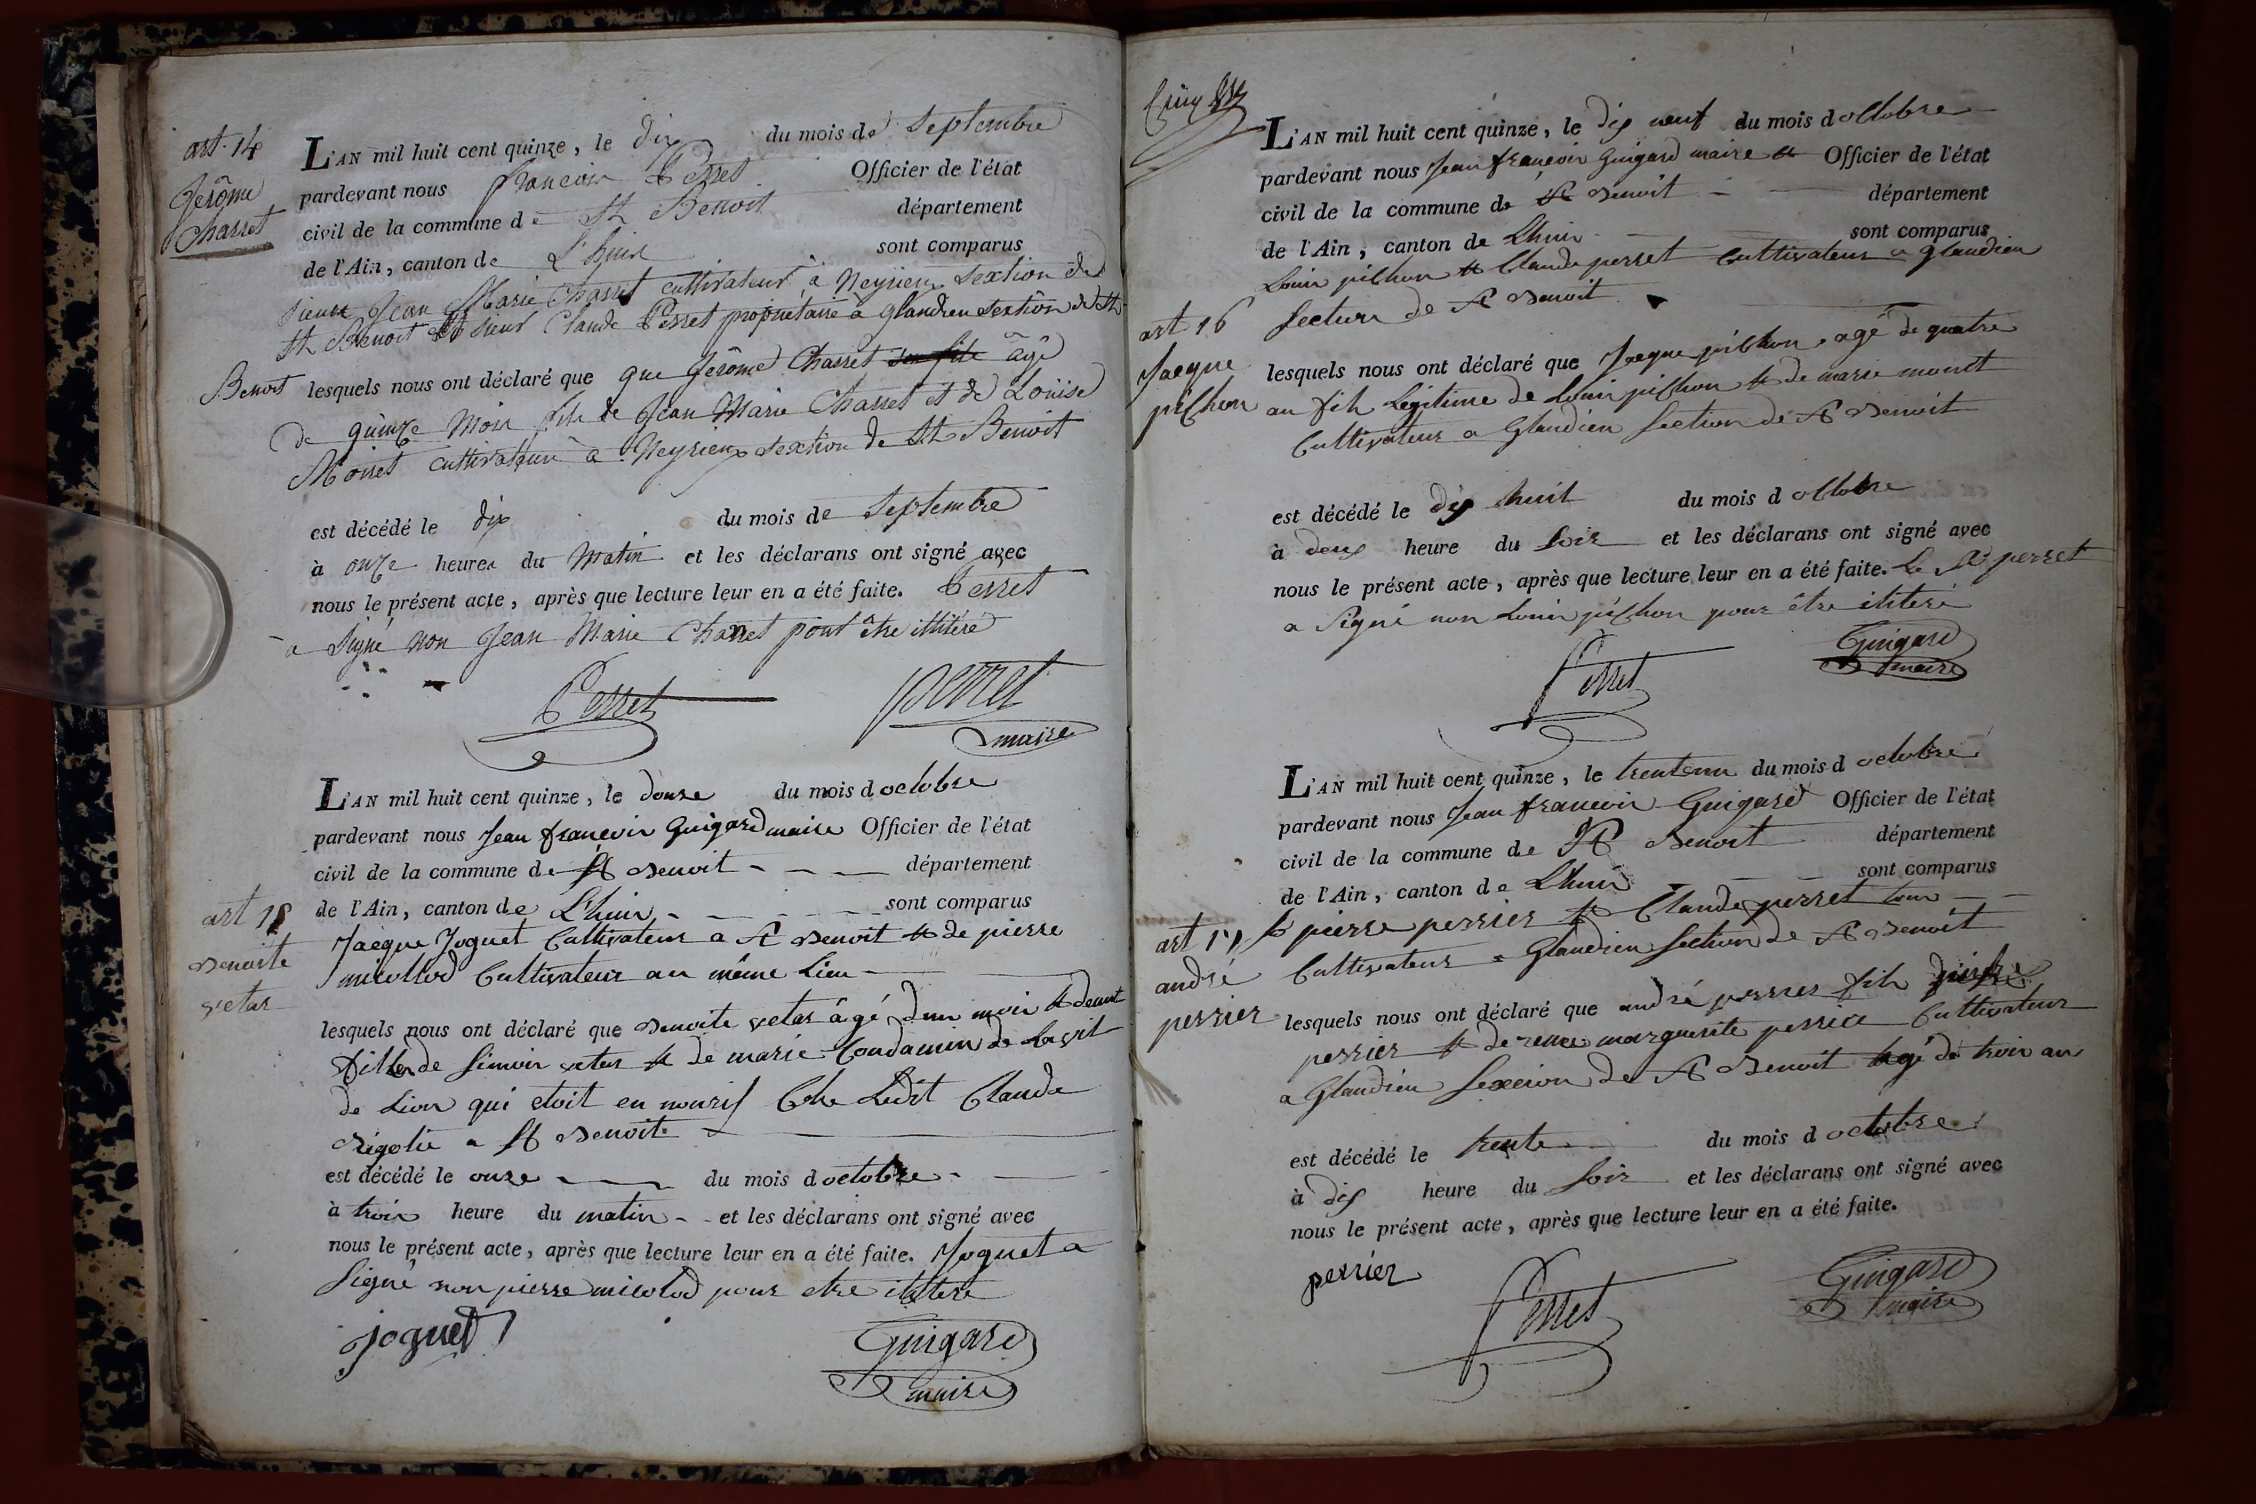 art. 14
Jerôme
Chasset
L'AN mil huit cent quinze, le dix du mois de Septembre
pardevant nous francois Perret Officier de l'état
civil de la commune de St Benoit département
de l'Ain, canton de L'huis sont comparus
sieur Jean Marie Chasset cultivateur à Neyrieu Sextion de
St Benoit et sieur Claude Perret propriétaire à glandieu sextion de St
Benoit lesquels nous ont déclaré que que Jerôme Chasset son fils âgé
de quinze mois fils de Jean Marie Chasset et de Louise
Moiret cultivateur à Neyrieu sextion de St Benoit
est décédé le dix du mois de Septembre
à onze heures du Matin et les déclarans ont signé avec
nous le présent acte, après que lecture leur en a été faite. Perret
a Signé non Jean Marie Chasset pour être illitéré
Perret perret
maire
L'AN mil huit cent quinze, le douze du mois d octobre
pardevant nous Jean francois Guigard maire Officier de l'état
civil de la commune de St Benoit département
de l'Ain, canton de L'huis sont comparus
Jacque Joguet Cultivateur a St Benoit et de pierre
micollod Cultivateur au même Lieu
art 15
Benoite
vetar
lesquels nous ont déclaré que Benoite vetar âgé d'un mois et demit
fille de Simon vetar et de marie Condamin de la vil
de Lion qui etoit en nouris Che Ledit Claude
Rigotie a St Benoit
est décédé le onze du mois d octobre
à trois heure du matin et les déclarans ont signé avec
nous le présent acte, après que lecture leur en a été faite. Joguet a
Signé non pierre micolod pour etre ilitere
joguet Guigard
maire
L'AN mil huit cent quinze, le dix neuf du mois d octobre
pardevant nous Jean francois Guigard maire et Officier de l'état
civil de la commune de St Benoit département
de l'Ain, canton de Lhuis sont comparus
Louis pichon et Claude perret Cultivateur a glandieu
Section de St Benoit
art 16
Jacque
pichon
lesquels nous ont déclaré que Jacque pichon, agé de quatre
an fils Légitime de Louis pichon et de marie monet
Cultivateur a Glandieu Section de St Benoit
est décédé le dix huit du mois d octobre
à deux heure du Soir et les déclarans ont signé avec
nous le présent acte, après que lecture leur en a été faite. Le Sr perret
a Signé non Louis pichon pour être ilitere
Perret Guigard
maire
L'AN mil huit cent quinze, le trenteun du mois d octobre
pardevant nous Jean francois Guigard Officier de l'état
civil de la commune de St Benoit département
de l'Ain, canton de Lhuis sont comparus
pierre perrier et Claude perret tous
Cultivateur a Glandieu Section de St Benoit
art 17
andré
perrier
lesquels nous ont déclaré que andré perrier fils
perrier et de marguerite Cultivateur
a Glandieu Sexcion de St Benoit agé de trois an
est décédé le trente du mois d octobre
à dix heure du Soir et les déclarans ont signé avec
nous le présent acte, après que lecture leur en a été faite.
perrier Perret Guigard
maire